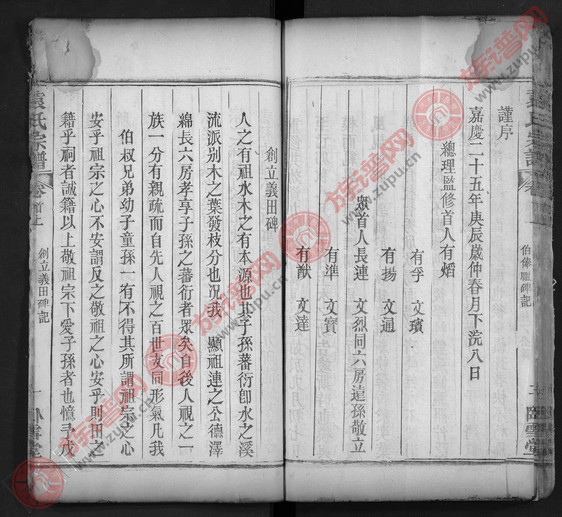 謹序
嘉慶二十五年庚辰歲仲春月下浣八日
總理監修首人有熠
有孚 文瓆
有揚 文通
衆首人長連 文烈同六房遠孫敬立
有準 文寶
有猷 文達
創立義田碑
人之有祖水木之有本源也其子孫蕃衍卽水之溪
流派别木之葉發枝分也况我 顯祖連之公德澤
綿長六房孝享子孫之蕃衍者眾矣自後人視之一
族一分有親疏而自先人視之百世攴同形氣凡我
伯叔兄弟幼子童孫一有不得其所謂祖宗之心
安乎祖宗之心不安謂反之敬祖之心安乎則田之
籍乎祠者誠籍以上敬祖宗下愛子孫者也憶
袁氏宗譜
卷首上
創立義田碑記
一
臥雪堂
袁氏宗譜
卷
碑記
臥雪堂
族谱网
www.zupu.cn